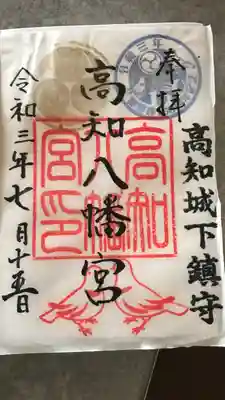 奉拝
高知城下鎮守
高知八幡宮
高知
八幡
宮印
令和三年七月十五日
令和三年